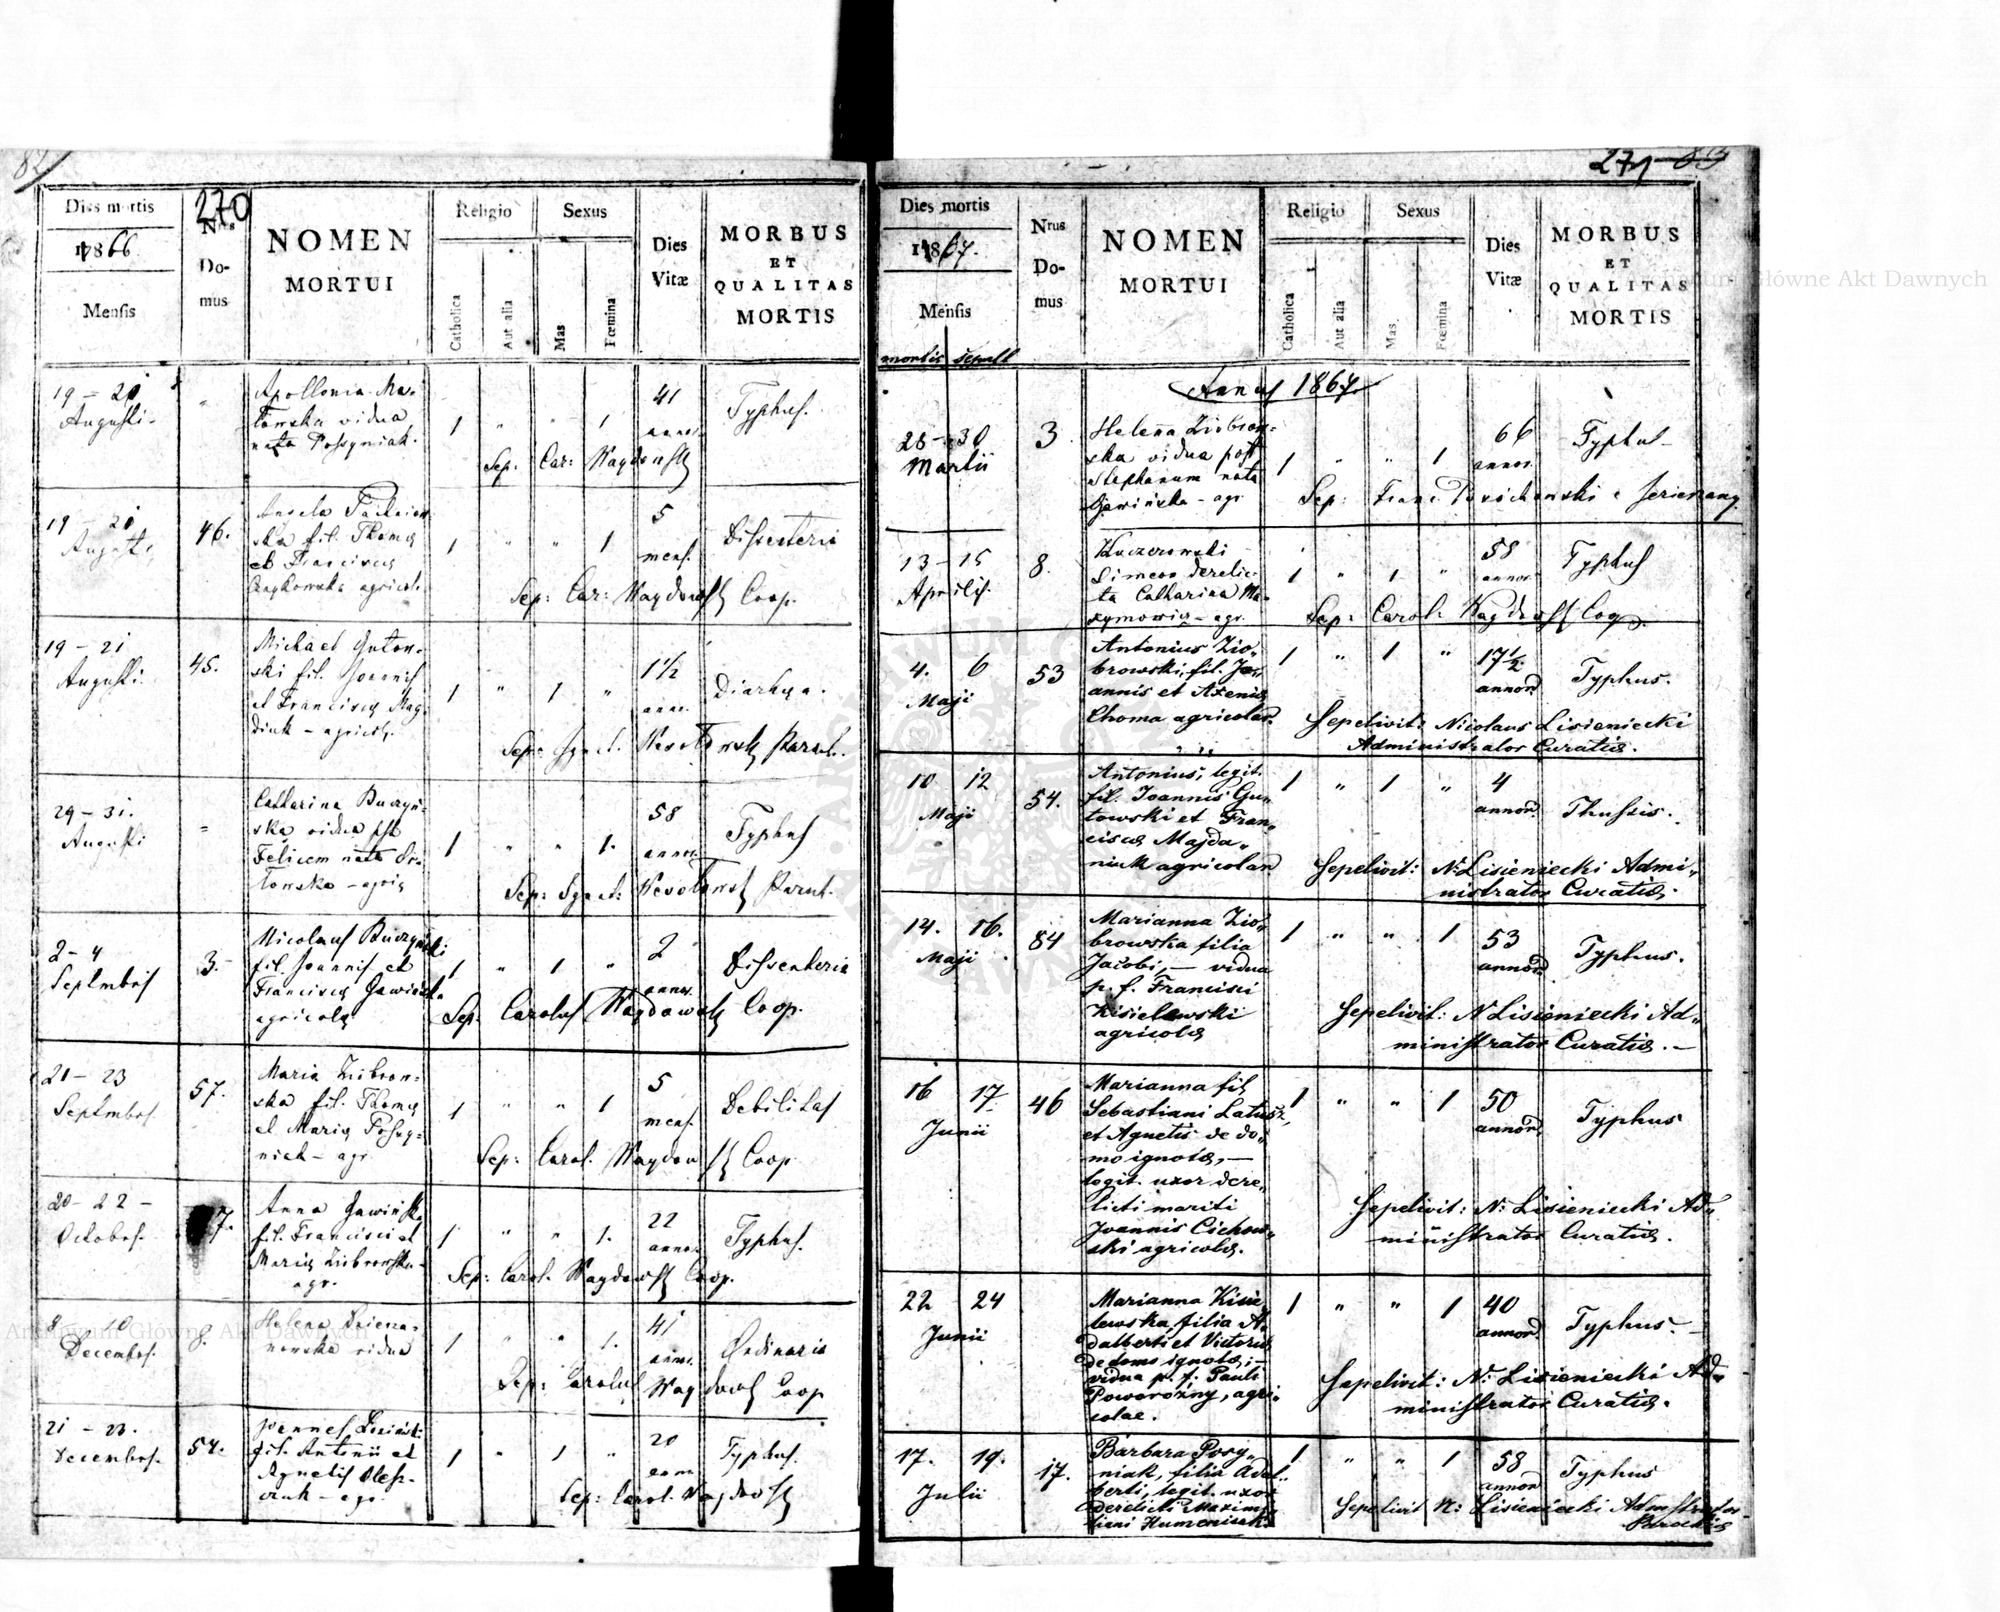 82
270
Dies mortis
1866
Mensis
Nrus
Do-
mus
NOMEN
MORTUI
Religio
Catholica
Aut alia
Sexus
Mas
Fœmina
Dies
Vitæ
MORBUS
ET
QUALITAS
MORTIS
19 – 21
Augusti
Apollonia
vidua
nata Posyniak
1 " " 1
41
annor.
Typhus.
Sep: Car:
19 21
Augusti
46.
Angela
ska fil. Thomæ
et Franciscæ
agricol.
1 " " 1
5
mens.
Dissenteria
Sep: Car: Coop.
19 – 21
Augusti
45.
Michael Guton-
ski fil. Joannis
et Franciscæ Mag-
diuk – agricol.
1 " 1 "
1 1/2
anni
Diarhea.
Sep: Ignat.
29 – 31.
Augusti
"
Catharina Buczyń-
ska vidua post
Felicem nata
– agric
1 " " 1.
58
annor.
Typhus
Sep: Ignat:
2 – 4
Septembris
3.
Nicolaus Buczyński
fil. Joannis et
Franciscæ Gawińska
agricolæ
1 " 1 "
2
annor.
Dissenteria
Sep. Carolus Coop.
21 – 23
Septembris.
57.
Maria Ziobrow-
ska fil. Thomæ
et Mariæ Posyg-
niak – agr.
1 " " 1
5
mens.
Debilitas
Sep: Carol. Coop.
20 – 22 –
Octobris.
7.
Anna Gawińska
fil. Francisci et
Mariæ Ziobrowska –
agr.
1 " " 1.
22
annor
Typhus.
Sep: Carol. Coop.
8 10
Decembr.
8.
Helena
vidua
1 " " 1.
41
annor.
Ordinaria
Sep: Carolus Coop
21 – 23.
Decembris.
54.
Joannes
fil. Antonii et
Agnetis Olesz-
czuk – agr.
1 " 1 "
20
annor
Typhus.
Sep: Carol.
271 83
Dies mortis
1867.
Mensis
mortis sepult
Nrus
Do-
mus
NOMEN
MORTUI
Religio
Catholica
Aut alia
Sexus
Mas.
Fœmina
Dies
Vitæ
MORBUS
ET
QUALITAS
MORTIS
Annus 1867
28 – 30
Martii
3
Helena Ziobrow-
ska vidua post
Stephanum nata
Gawińska – agr
1 " " 1
66
annor.
Typhus
Sep: Franc
13 – 15
Aprilis.
8.
Kaczorowski
Simeon derelic-
ta Catharina Ma-
xymowicz – agr.
1 " 1 "
58
annor
Typhus
Sep: Carol. Coop.
4. 6
Maji
53
Antonius Zio„
browski, fil. Jo„
annis et Axeniæ
Choma agricolar.
1 " 1 "
17 1/2
annor
Typhus.
Sepelivit: Nicolaus Lisieniecki
Administrator Curatiæ.
10 12
Maji
54.
Antonius, legit.
fil. Joannis Gu„
towski et Fran„
ciscæ Majda„
niuk agricolar
1 " 1 "
4
annor
Thussis.
Sepelivit: N. Lisieniecki Admi„
nistrator Curatiæ.
14. 16.
Maji
84
Marianna Zio„
browska filia
Jacobi, — vidua
p. f. Francisci
Kisielewski
agricolæ
1 " " 1
53
annor
Typhus.
Sepelivit: N Lisieniecki Ad„
ministrator Curatiæ. –
16 17
Junii
46
Marianna fil
Sebastiani Latusz
et Agnetis de do„
mo ignotæ, —
legit. uxor dere„
licti mariti
Joannis Cichow„
ski agricolæ.
1 " " 1
50
annor
Typhus
Sepelivit: N. Lisieniecki Ad„
ministrator Curatiæ.
22 24
Junii
Marianna Kisie„
lewska, filia A„
dalberti et Victoriæ
de domo ignotæ; –
vidua p. f. Pauli
Poworożny, agri„
colae.
1 " " 1
40
annor
Typhus. –
Sepelivit: N. Lisieniecki Ad„
ministrator Curatiæ.
17. 19.
Julii
17.
Barbara Posy„
niak, filia Adal„
berti, legit. uxor
derelicti Maximi„
liani Humeniuk
1 " " 1
58
annor
Typhus
Sepelivit N: Lisieniecki
Archiwum Główne Akt Dawnych
Archiwum Główne Akt Dawnych